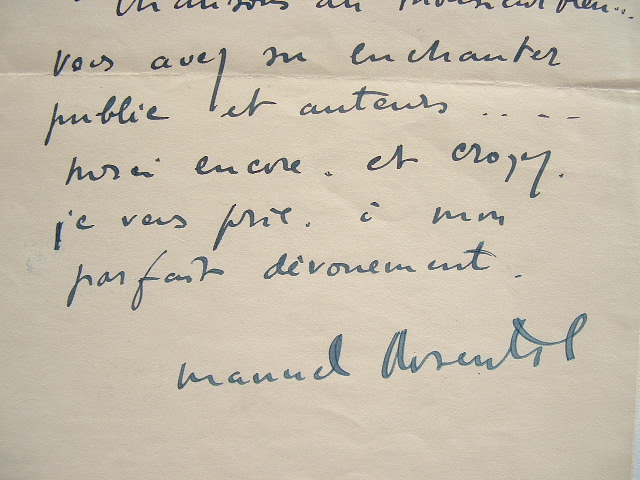 Chansons du Monsieur Bleu...
vous avez su enchanter
public et auteurs ....
merci encore. et croyez.
je vous prie. à mon
parfait dévouement.
manuel Rosenthal